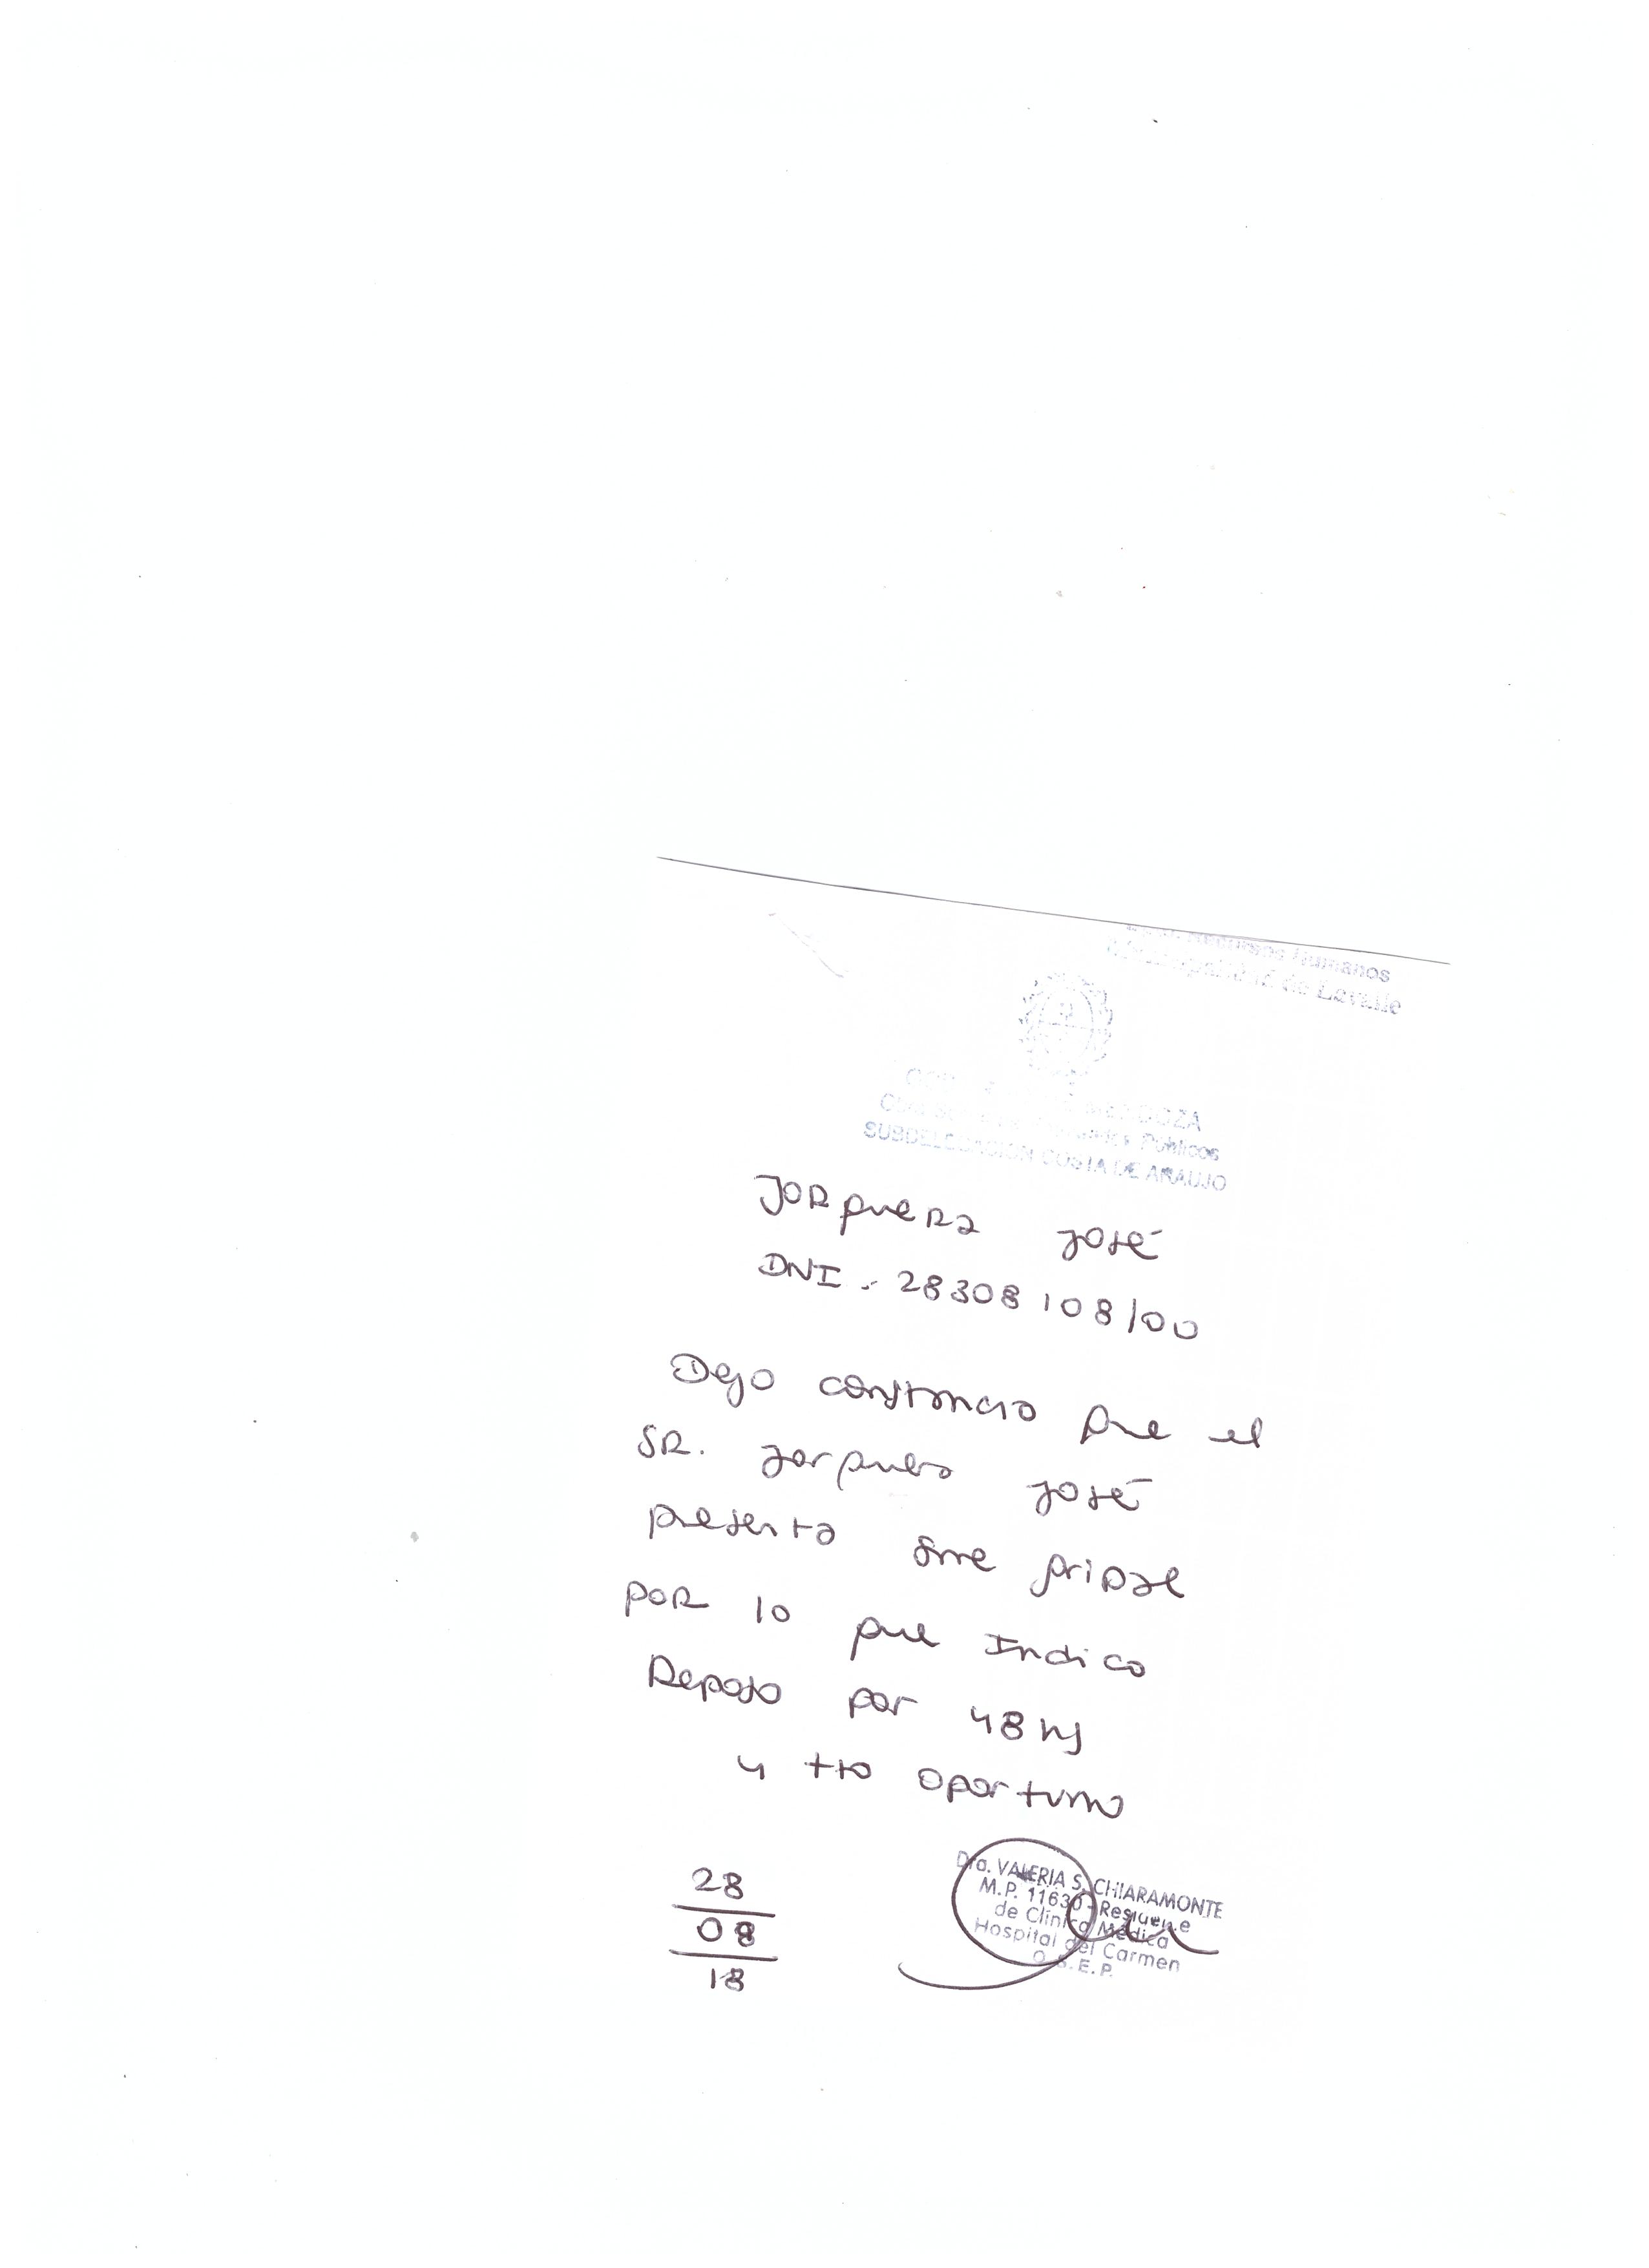 Recursos Humanos
de Lavalle
MENDOZA
Públicos
SUBDELEGACION COSTA DE ARAUJO
JORqueRa José
DNI. 28308108/00
Dejo constancia que el
SR. Jorquera José
presenta sme gripal
POR lo que Indico
Reposo por 48 hs
y tto oportuno
28
08
18
Dra. VALERIA S. CHIARAMONTE
M.P. 11630 - Residente
de Clínica Médica
Hospital del Carmen
O.S.E.P.